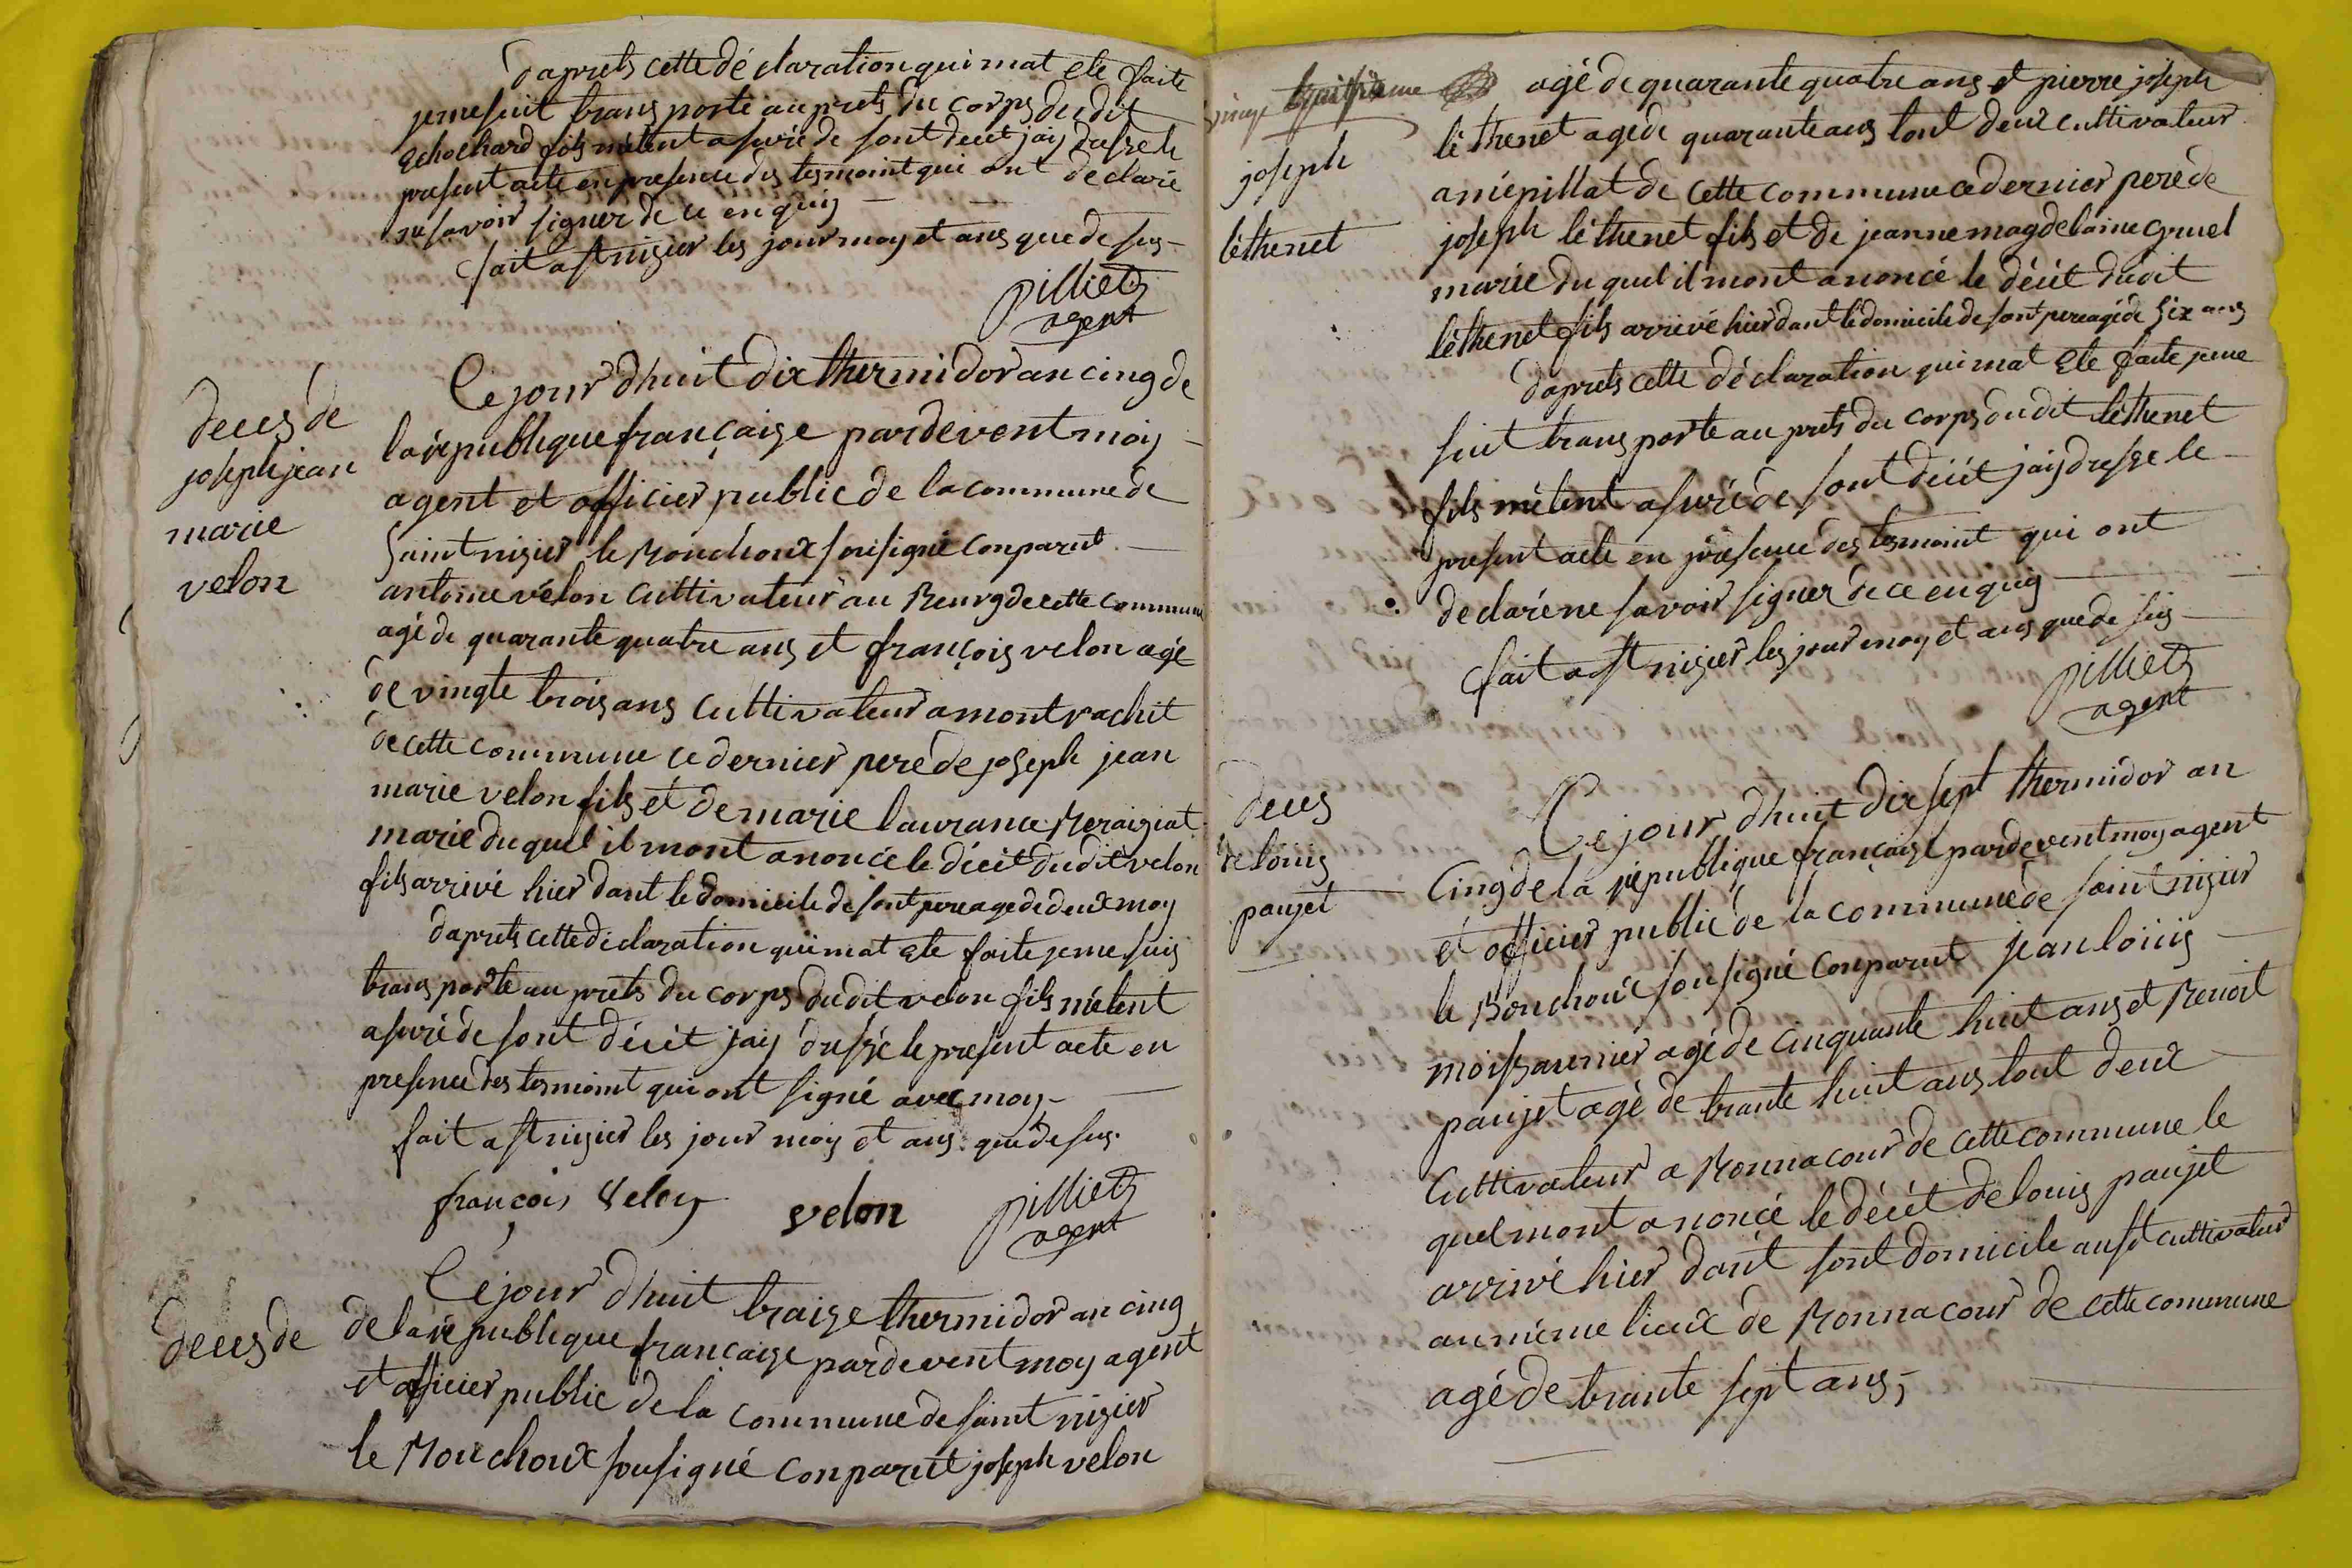 daprets cette déclaration qui mat ete faite
je me suit transporté au prets du corps du dit
fils m'etent asuré de sont decét jay dressé le
present acte en presence des tesmoint qui ont declaré
ne savoir signer de ce enquis
fait a st nizier les jour moy et ans que de sus
pilliet
agent
deces de
joseph jean
marie
velon
Ce jour dhuit dix thermidor an cinq de
la republique françaize pardevent moy
agent et officier public de la commune de
Saint nizier le Bouchoux sousigné conparut
antoine vélon cultivateur au Bourg de cette commune
agé de quarante quatre ans et françois velon agé
de vingte trois ans cultivateur a montrachit
de cette commune ce dernier peré de joseph jean
marie velon fils et de marie laurance
marié du quel il mont anoncé le décét du dit velon
fils arrivé hier dant le domicile de sont pere agé de deux moy
daprets cette déclaration qui mat ete faite je me suis
transporté au prets du corps du dit velon fils m'etent
asuré de sont décét jay dressé le present acte en
presence des tesmoint qui ont signé avec moy
fait a st nizier les jour moy et ans que de sus
françois velon
velon
pilliet
agent
deces de
Ce jour dhuit traize thermidor an cinq
de la republique françaize pardevent moy agent
et officier public de la commune de saint nizier
le Bouchoux sousigné conparut joseph velon
joseph
léthenet
agé de quarante quatre ans et pierre joseph
léthenet agé de quarante ans tout deux cultivateur
a miépillat de cette commune ce dernier peré de
joseph léthenet fils et de jeanne magdelaine gruel
marié du quel il mont anoncé le décét dudit
léthenet fils arrivé hier dant le domicile de sont pere agé de six ans
daprets cette déclaration qui mat ete faite je me
suit transporté au prets du corps du dit léthenet
fils m'etent asuré de sont décét jay dressé le
present acte en presence des tesmoint qui ont
declaré ne savoir signer de ce enquis
fait a st nizier les jour moy et ans que de sus
pilliet
agent
deces
de louis
paujet
Ce jour dhuit dix sept thermidor an
Cinq de la republique françaize pardevent moy agent
et officier public de la commune de saint nizier
le Bouchoux sousigné conparut jean louis
moissonnier agé de cinquante huit ans et Benoit
paujet agé de trante huit ans tout deux
Cultivateur a Bonnacour de cette commune le
quel mont anoncé le décét de louis paujet
arrivé hier dant sont domicile aussi cultivateur
au méme lieux de Bonnacour de cette commune
agé de trante sept ans,